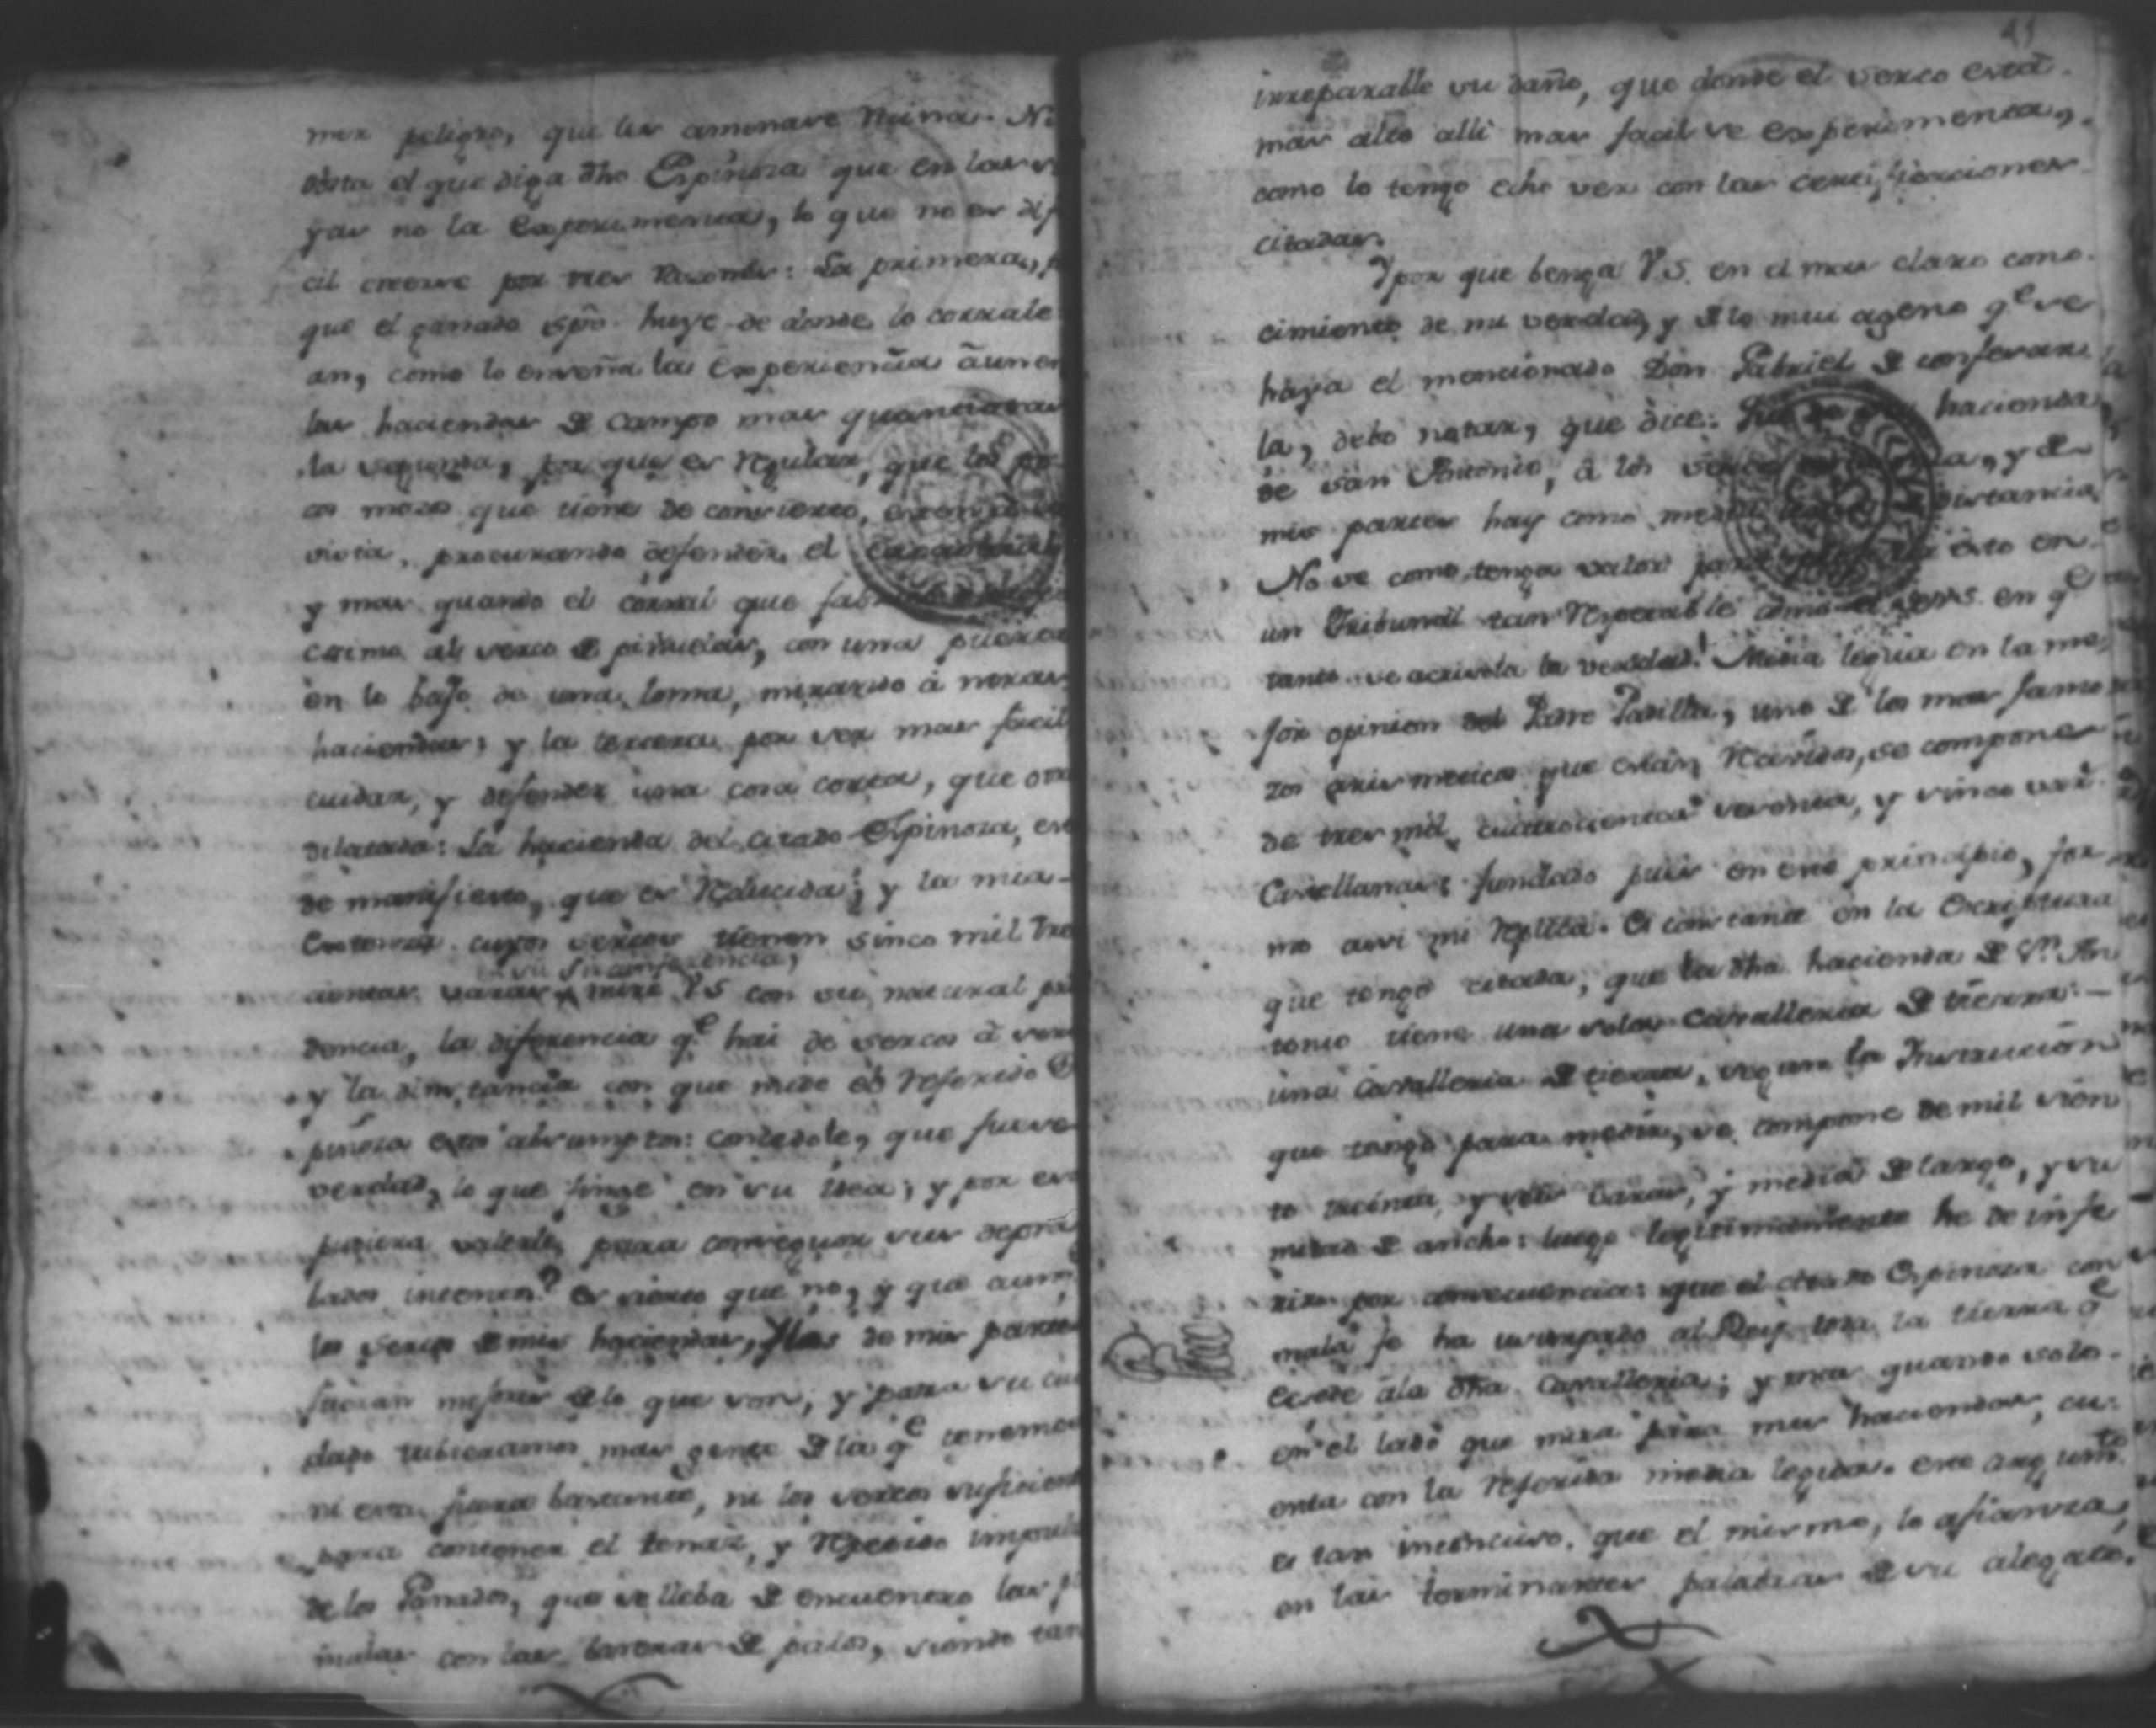 mer peligro, que les amenase Ruina. No
obsta el que diga dho Espinosa que en las su
yas no la experimenta, lo que no es difi
cil creerse por tres Razones: La primera, p
que el ganado spre. huye de donde lo corrale
an, como lo enseña la experiencia aun en
las haciendas de campo mas quantiosas
la segunda, por que es Regular, que los po
cos mozos que tiene de concierto, esten
vista, procurando defender el
y mas quando el corral que
cerimo al serco de piñuelas, con una puerta
en lo bajo de una loma, mirando â nuestras
haciendas; y la tercera por ser mas facil
cuidar, y defender una cosa corta, que otra
dilatada: La hacienda del citado Espinosa, es
de manifiesto, que es Reducida; y la mia
extensa cuyos sercos tienen sinco mil tre
en su sircunferencia,
cientas varas mire VS con su natural pru
dencia, la diferencia q.e hai de sercos â ser
y la dimtancia con que mide el Referido Es
pinosa estos abrumptos: concedole, que fuese
verdad, lo que finge en su idea; y por eso
pudiera valerle, para conseguir sus depra
bados intentos? es sierto que no, y que aunq.e
los sercos de mis haciendas, y las de mis partes
fueran mejores de lo que son; y para su cui
dado tubieramos mas gente de la q.e tenemos
ni esta fuera bastante, ni los sercos suficientes
para contener el tenaz, y Repetido impulso
de los Ganados, que se lleba de encuentro las pi
ñuelas con las barreras de palos, siendo tan
irreparable su daño, que donde el serco está
mas alto alli mas facil se experimenta,
como lo tengo echo ver con las certificaciones
citadas.
Y por que benga V.S. en el mas claro cono
cimiento de mi verdad, y de lo mui ageno q.e se
haya el mencionado Don Gabriel de confesar
la, debo notar, que dice: hacienda
de san Antonio, â los y de
mis partes hay como media distancia
No se como tenga valor para esto en
un Tribunal tan Respectable como el de V.S. en q.e
tanto se acrisola la verdad! Media legua en la me
jor opinion del Padre Padilla, uno de los mas famo
zos arismeticos que estan Recividos, se compone
de tres mil, quatrocientas sesenta, y sinco var.s
Castellanas: fundado pues en este principio, for
mo assi mi Replica. Es constante en la Escriptura
que tengo citada, que la dha. hacienda de S.n An
tonio tiene una sola Cavalleria de tierra:
una Cavalleria de tierra, segun la Instruccion
que tengo para medir, se compone de mil sien
to treinta, y seis baras, y media de largo, y su
mitad de ancho: luego legitimamente he de infe
rir por consecuencia: que el citado Espinosa con
mala fe ha usurpado al Rey toda la tierra q.e
exede âla dha. Cavalleria; y mas quando solo
en el lado que mira para mis haciendas, cu
enta con la Referida media legua. este argum.to
es tan inconcuso, que el mismo, lo afianza,
en las terminantes palabras de su alegato.